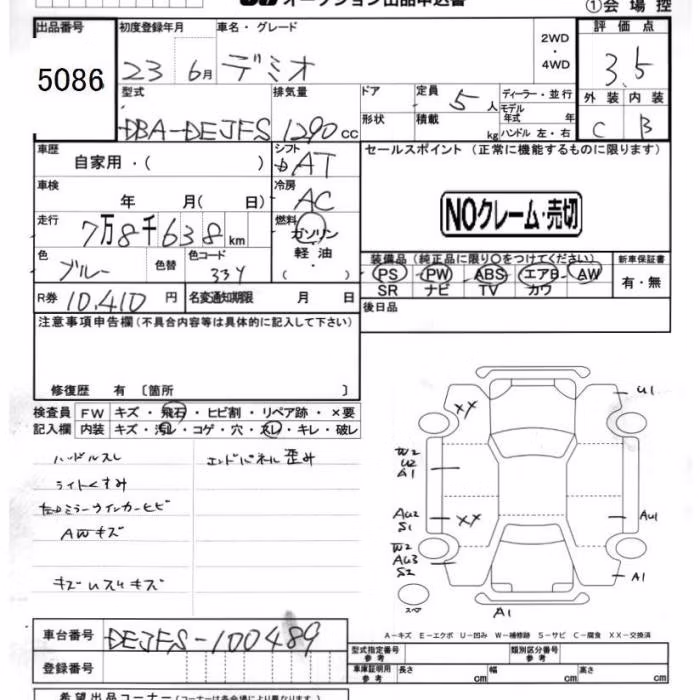 オークション出品申込書
①会場控
出品番号
5086
初度登録年月
23 6月
車名・グレード
デミオ
2WD
・
4WD
評価点
3.5
型式
DBA-DEJFS
排気量
1290 cc
ドア
形状
定員
5人
積載
kg
ディーラー・並行
モデル
年式 年
ハンドル 左・右
外装 内装
C B
車歴
自家用・( )
シフト
AT
セールスポイント (正常に機能するものに限ります)
NOクレーム・売切
車検
年 月( 日)
冷房
AC
走行
7万8千638km
燃料
ガソリン
軽油
・( )
色
ブルー
色替
色コード
334
装備品(純正品に限り○をつけてください)
PS PW ABS エアB AW
SR ナビ TV カワ
新車保証書
有・無
R券 10,410円
名変通知期限 月 日
後日品
注意事項申告欄(不具合内容等は具体的に記入して下さい)
修復歴 有 〔箇所 〕
検査員
記入欄
FW キズ・飛石・ヒビ割・リペア跡・×要
内装 キズ・汚レ・コゲ・穴・スレ・キレ・破レ
ハンドルスレ
エンドパネル歪み
ライトくすみ
左ドミラーウインカーヒビ
AWキズ
キズ いスリキズ
XX
U1
W2
U2
A1
AU2
S1
XX
AU1
W2
AU3
S2
A1
スペア
A1
A−キズ E−エクボ U−凹み W−補修跡 S−サビ C−腐食 XX−交換済
車台番号
DEJFS-100489
登録番号
型式指定番号
参考
類別区分番号
参考
車庫証明用
参考
長さ cm
幅 cm
高さ cm
希望出品コーナー(コーナーは各会場により異なります。)